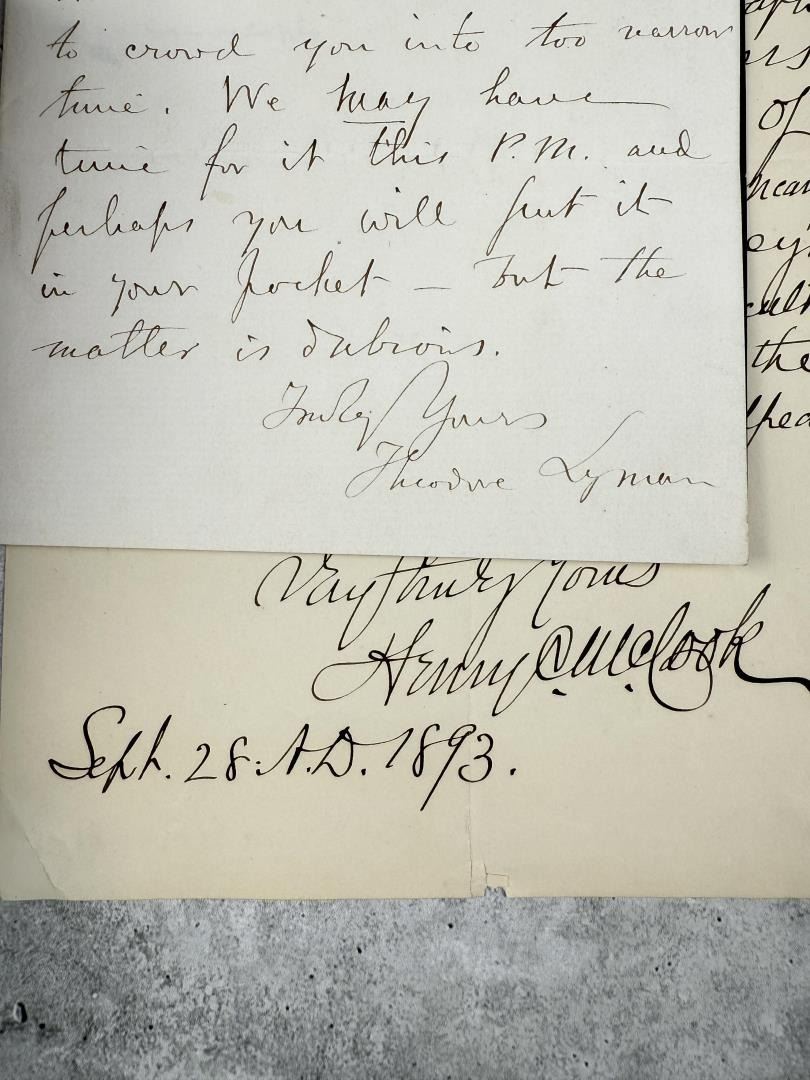 to crowd you into too narrow
time. We may have
time for it this P.M. and
perhaps you will put it
in your pocket — but the
matter is dubious.
Truly Yours
Theodore Lyman
of
the
Very truly Yours
Henry C. McCook
Sept. 28. A.D. 1893.